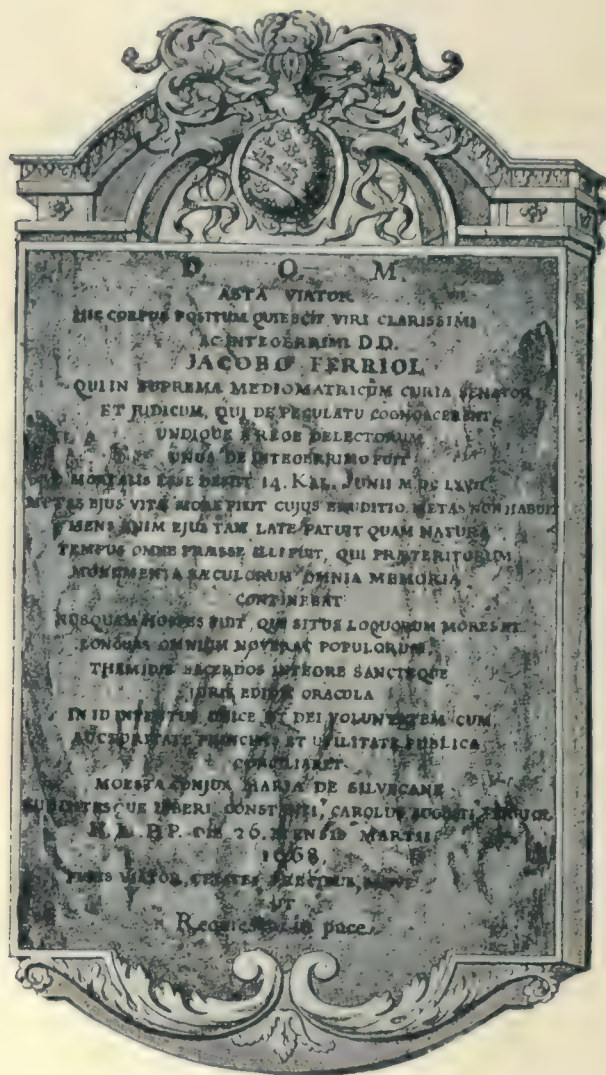 D. O. M.
ASTA VIATOR
HIC CORPUS POSITUM QUIESCIT VIRI CLARISSIMI
AC INTEGERRIMI D.D.
JACOBI FERRIOL
QUI IN SUPREMA MEDIOMATRICUM CURIA SENATOR
ET JUDICUM, QUI DE PECULATU COGNOSCERENT
UNDIQUE A REGE DELECTORUM
UNUS DE INTEGERRIMO FUIT
MORTALIS ESSE DESIIT 14. KAL. JUNII M DC LXVII
METAS EJUS VITÆ MORS FIXIT CUJUS ERUDITIO METAS NON HABUIT
MENS ENIM EJUS TAM LATE PATUIT QUAM NATURA
TEMPUS OMNE PRÆSSE ILLI FUIT, QUI PRÆTERITORUM
MONUMENTA SÆCULORUM OMNIA MEMORIA
CONTINEBAT
NUSQUAM HOSPES FUIT, QUI SITUS LOQUORUM MORES ET
LONGUAS OMNIUM NOVERAT POPULORUM,
THEMIDIS SACERDOS INTEGRE SANCTEQUE
JURIS EDIDIT ORACULA
IN ID INTENTUS UNICE UT DEI VOLUNTATEM CUM
AUCTORITATE PRINCIPIS ET UTILITATE PUBLICA
CONCILIARET
MOESTA CONJUX MARIA DE SILVECANE
LIBERI CAROLUS
M. P.P. DIE 26. MENSIS MARTII
1668,
VIATOR,
UT
Requiescat in pace.